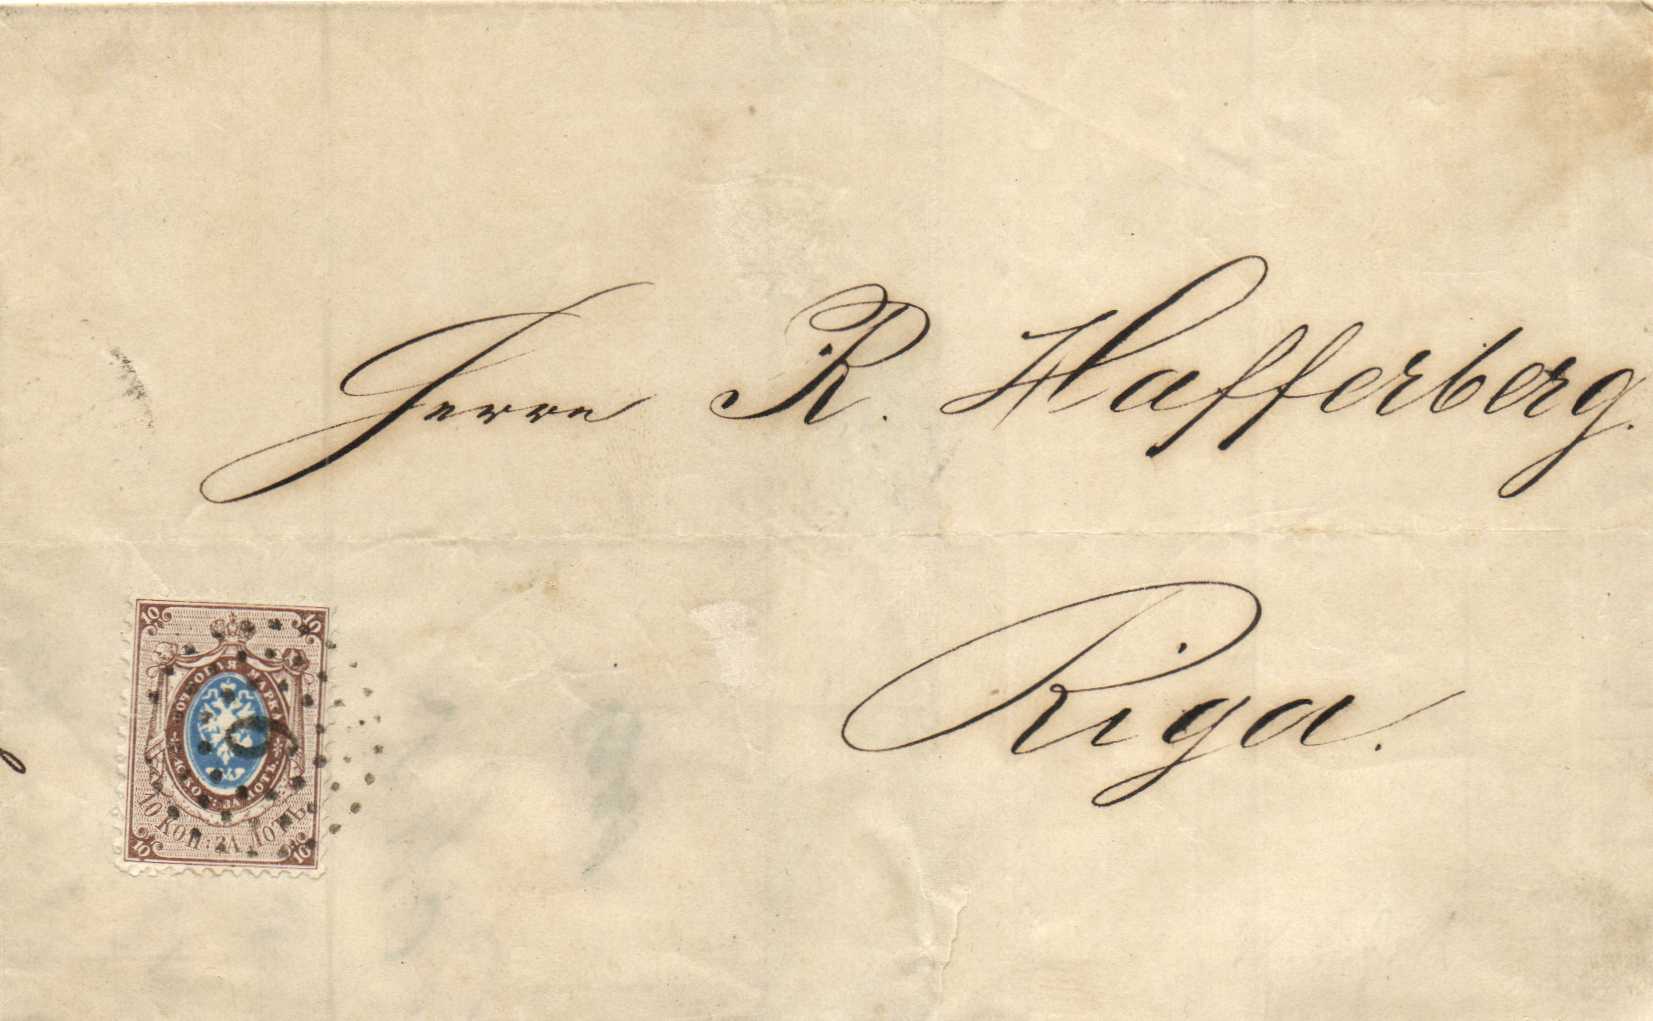 Herrn R. Hafferberg.
Riga.
10 10
ПОЧТОВАЯ МАРКА
10 КОП: ЗА ЛОТЪ.
10 КОП: ЗА ЛОТЪ.
10 10